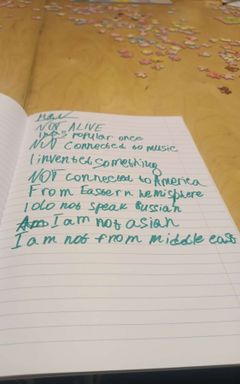 NOT ALIVE
I was Popular once
NOT Connected to music
I invented something
NOT connected to America
From Eastern hemisphere
I do not speak Russian
I am not asian
I am not from middle east